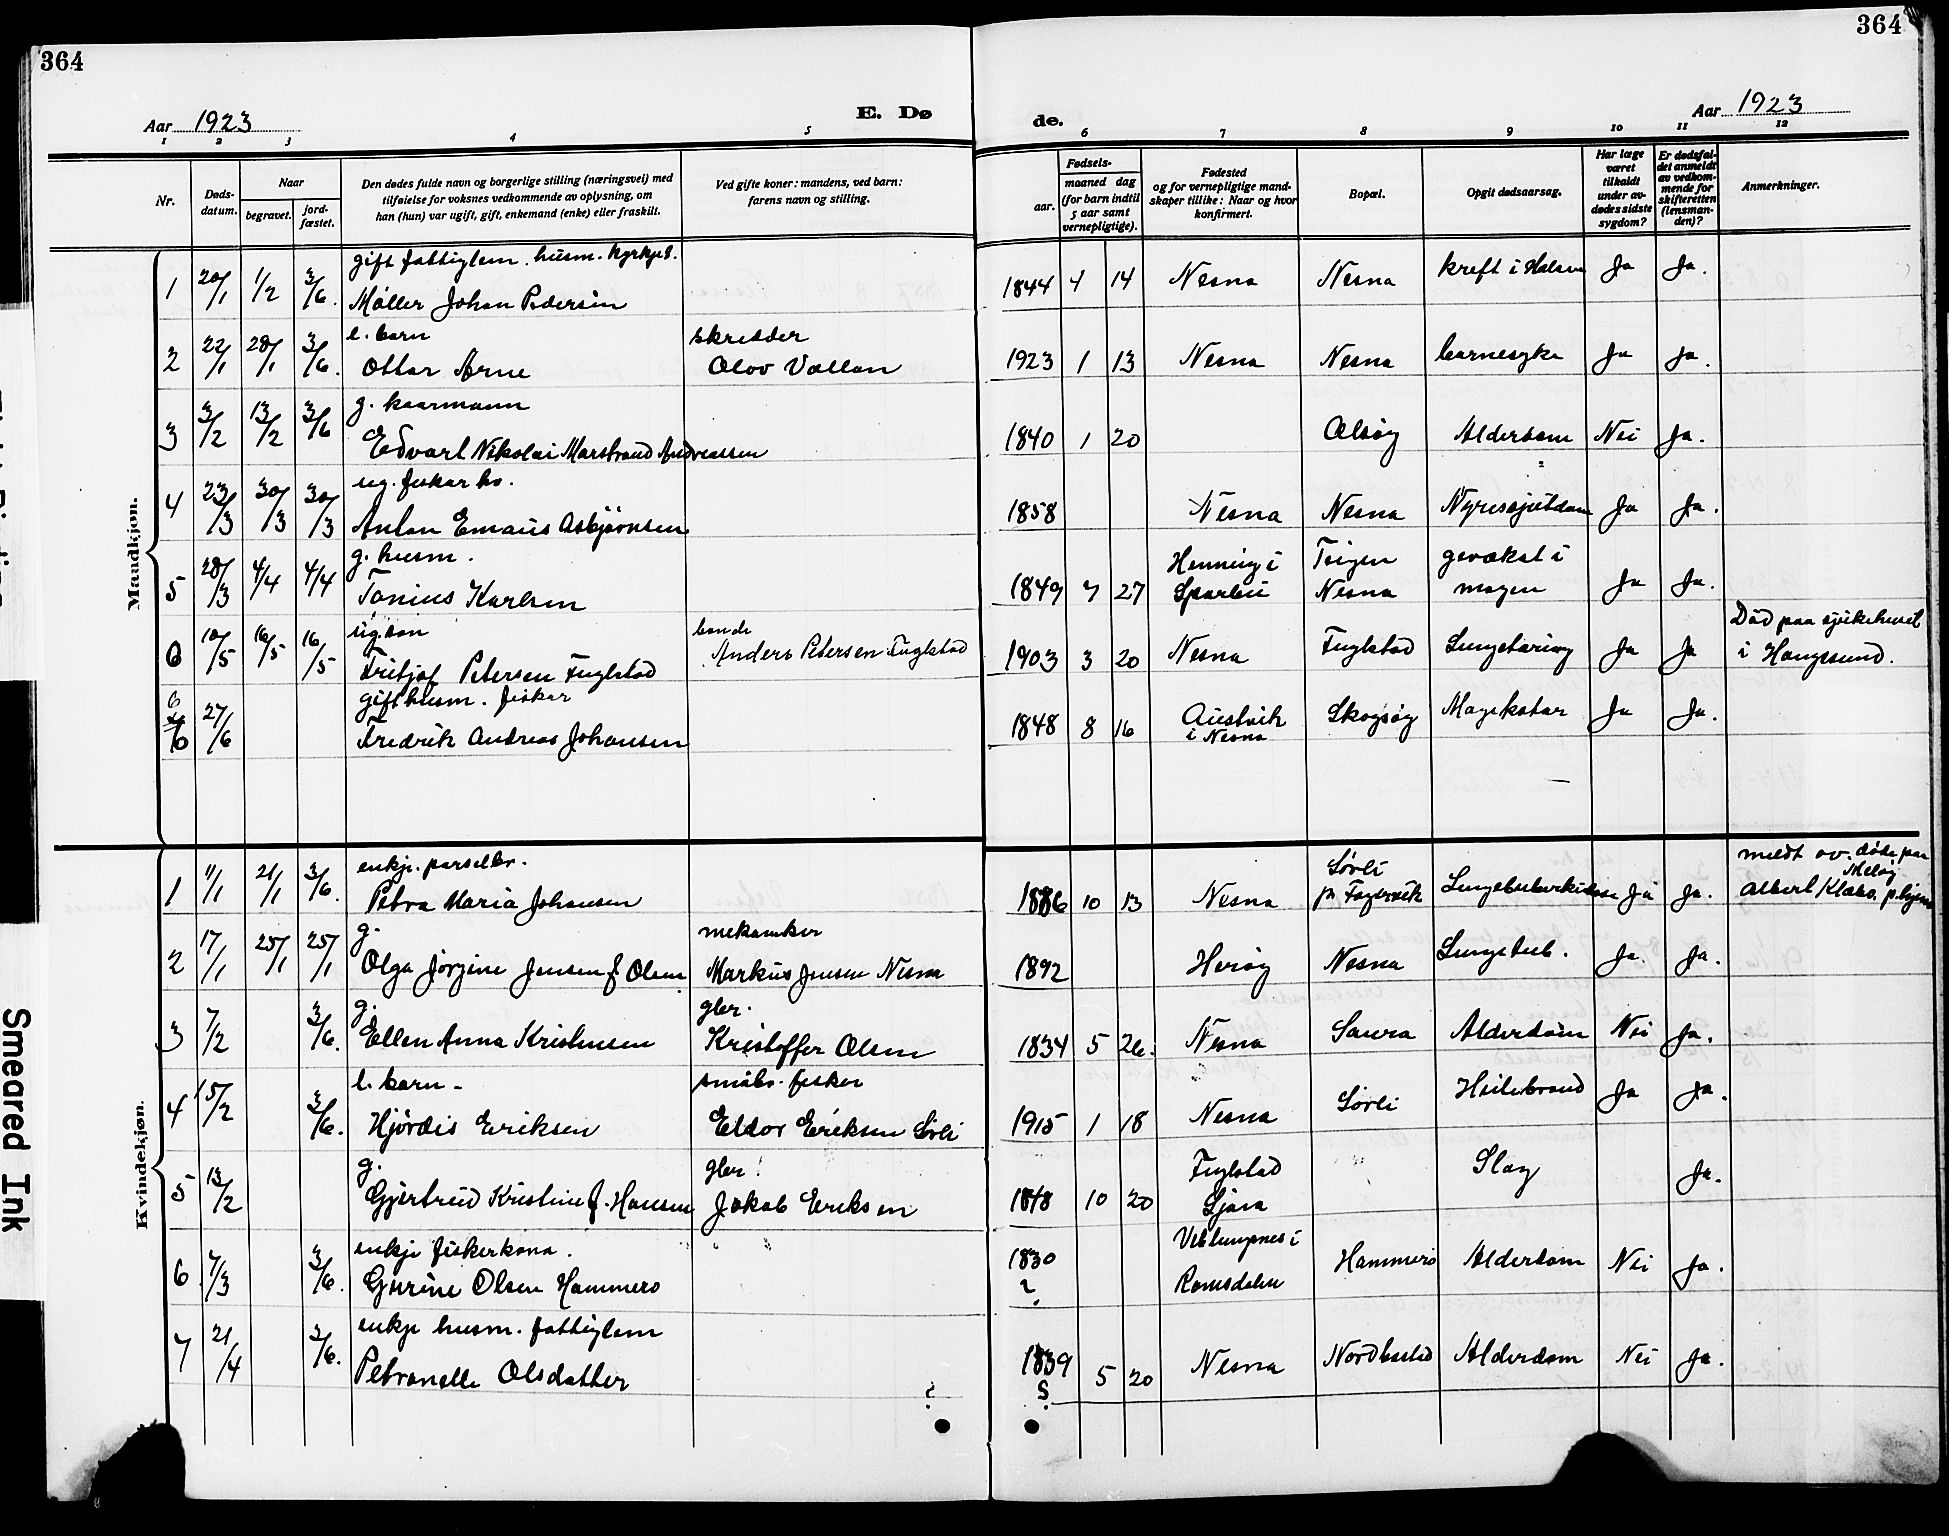 364
364
Aar 1923
E. Dø
de.
Aar 1923
1 2 3 4 5 6 7 8 9 10 11 12
Nr.
Døds-
datum.
Naar
begravet.
jord-
fæstet.
Den dødes fulde navn og borgerlige stilling (næringsvei) med
tilføielse for voksnes vedkommende av oplysning, om
han (hun) var ugift, gift, enkemand (enke) eller fraskilt.
Ved gifte koner: mandens, ved barn:
farens navn og stilling.
Fødsels-
aar.
maaned dag
(for barn indtil
5 aar samt
vernepligtige).
Fødested
og for vernepligtige mand-
skaper tillike: Naar og hvor
konfirmert.
Bopæl.
Opgit dødsaarsag.
Har læge
været
tilkaldt
under av-
dødes sidste
sygdom?
Er dødsfal-
det anmeldt
av vedkom-
mende for
skifteretten
(lensman-
den)?
Anmerkninger.
Mandkjøn.
gift fattiglem. husm.
1 20/1 1/2 3/6. Møller Johan Pedersen 1844 4 14 Nesna Nesna kreft i Halsen Ja Ja.
e. barn skredder
2 22/1 28/1 3/6. Ottar Arne Olov Vallan 1923 1 13 Nesna Nesna barnesyke Ja Ja.
g. kaarmann
3 3/2 13/2 3/6 Edvart Nikolai Marstrand Andreassen 1840 1 20 Alsøy Alderdom Nei Ja.
ug. fisker
4 23/3 30/3 30/3 Anton Emaus Asbjørnsen 1858 Nesna Nesna Nyresjukdom Ja Ja.
g. husm.
5 28/3 4/4 4/4 Tonius Karlsen 1849 7 27 Henning i Sparbu Teigen Nesna gevækst i magen Ja Ja.
ug. søn bonde
6 10/5 16/5 16/5 Fritjof Petersen Fuglstad Anders Petersen Fuglstad 1903 3 20 Nesna Fuglstad Lungetæring Ja Ja
Død paa sjukehuset
i Haugesund.
gift husm. fisker
6 27/6 Fredrik Andreas Johansen 1848 8 16 Austvik i Nesna Skogsøy Magekatar Ja Ja.
Kvindekjøn.
enkje. parselbr.
1 11/1 21/1 3/6. Petra Maria Johansen 1886 10 13 Nesna Sørli Fagervik Ja Ja.
meldt av. døde paa
Meløy
Albert
g. mekaniker
2 17/1 25/1 25/1 Olga Jörgine Jensen f Olsen Markus Jensen Nesna 1892 Herøy Nesna Lungetub. Ja Ja.
g. gbr.
3 7/2 3/6. Ellen Anna Kristensen Kristoffer Olsen 1834 5 26. Nesna Saura Alderdom Nei Ja.
e. barn - småbr. fisker
4 15/2 3/6. Hjördis Eriksen Eldor Eriksen Sørli 1915 1 18 Nesna Sørli Ja Ja.
g. gbr.
5 13/2 Gjertrud Kristine f. Hansen Jakob Eriksen 1848 10 20 Fuglstad Sjona Slag Ja.
enkje fiskerkona.
6 7/3 3/6. Gurine Olsen Hammerø 1830 ? Veblungsnes i Romsdalen Hammerö Alderdom Nei Ja.
enkje husm. fattiglem
7 21/4 3/6. Petranelle Olsdatter ? 1839 5 20 Nesna Nordbustad Alderdom Nei Ja.
Smeared Ink